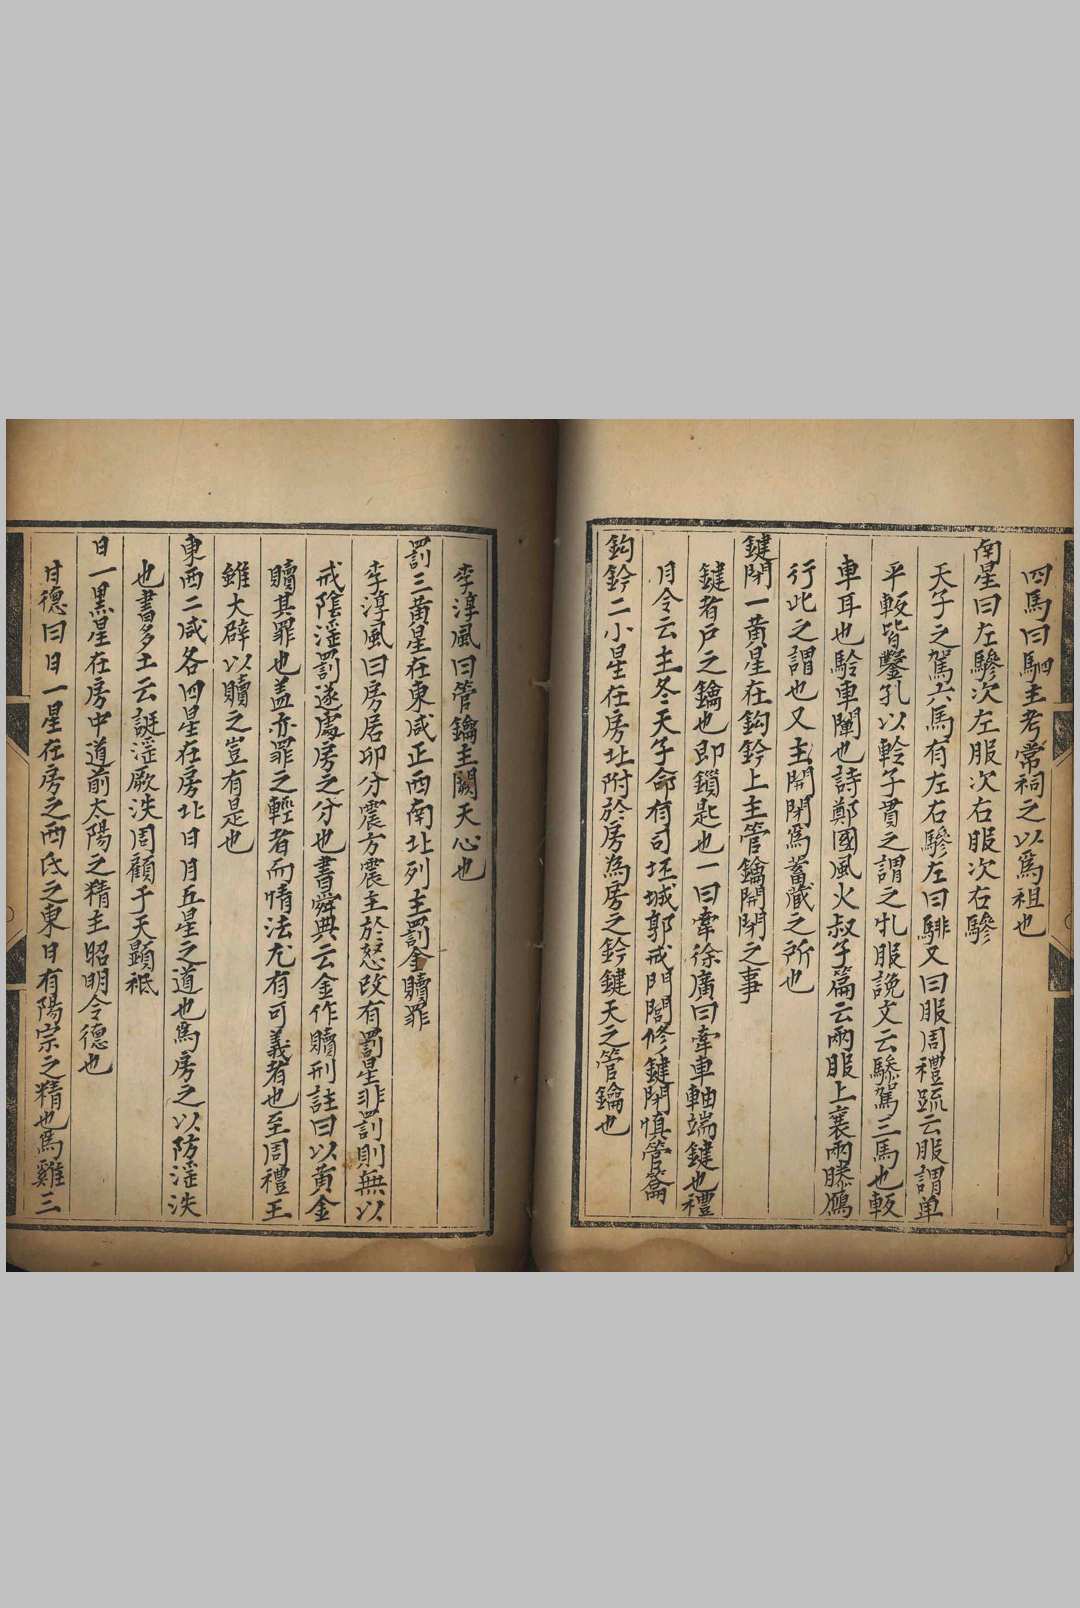 四馬曰駟主考常祠之以為祖也
南星曰左驂次左服次右服次右驂
天子之駕六馬有左右驂左曰騑又曰服周禮疏云服謂單
平較皆鑿孔以軨子貫之謂之軋服說文云驂駕三馬也軨
車耳也軨車闌也詩鄭國風火叔子篇云兩服上襄兩驂鴈
行此之謂也又主開閉為蓄藏之所也
鍵閉一黃星在鈎鈐上主管鑰開閉之事
鍵者戶之鑰也即鎖匙也一曰牽徐廣曰牽車軸端鍵也禮
月令云主冬天子命有司坯城郭戒門閭修鍵閉慎管籥
鈎鈐二小星在房北附於房為房之鈐鍵天之管鑰也
李淳風曰管鑰主闕天心也
罰三黃星在東咸正西南北列主罰金贖罪
李淳風曰房居卯分震方震主於怒改有罰星非罰則無以
戒陰淫罰遂處房之分也書舜典云金作贖刑註曰以黃金
贖其罪也盖亦罪之輕者而情法尤有可義者也至周禮王
雖大辟以贖之豈有是也
東西二咸各四星在房北日月五星之道也為房之以防淫泆
也書多士云誕淫厥泆罔顧于天顯祗
日一黑星在房中道前太陽之精主昭明令德也
甘德曰日一星在房之西氐之東日有陽宗之精也為雞三